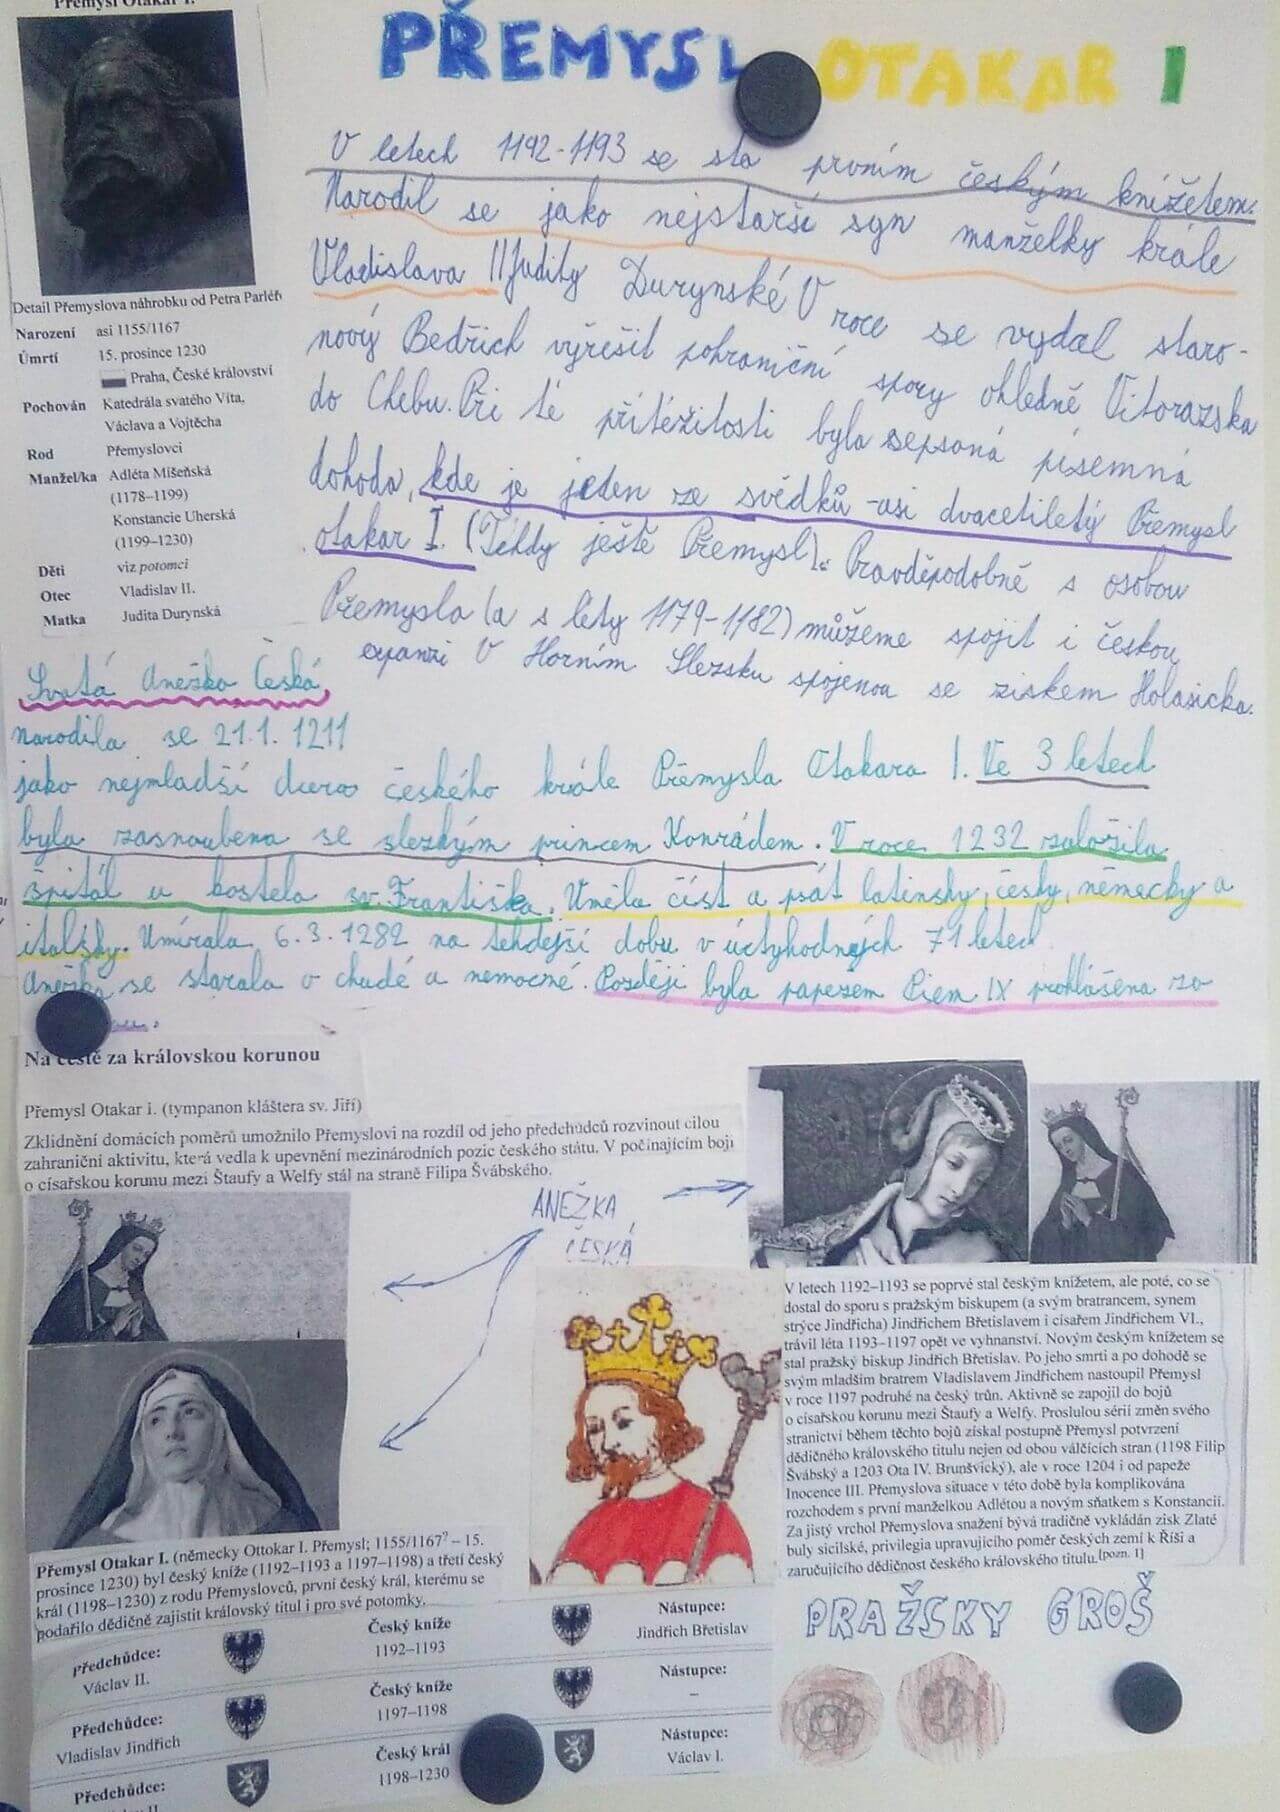 Přemysl Otakar I.
PŘEMYSL OTAKAR I
Detail Přemyslova náhrobku od Petra Parléř
Narození asi 1155/1167
Úmrtí 15. prosince 1230
Praha, České království
Pochován Katedrála svatého Víta,
Václava a Vojtěcha
Rod Přemyslovci
Manžel/ka Adléta Míšeňská
(1178–1199)
Konstancie Uherská
(1199–1230)
Děti viz potomci
Otec Vladislav II.
Matka Judita Durynská
V letech 1192-1193 se sta prvním českým knížetem.
Narodil se jako nejstarší syn manželky krále
Vladislava II Judity Durynské V roce se vydal staro-
nový Bedřich vyřešit pohraniční spory ohledně Vitorazska
do Chebu. Při té přítěžitosti byla sepsaná písemná
dohoda, kde je jeden ze svědků -asi dvacetiletý Přemysl
otakar I. (Tehdy ještě Přemysl). Pravděpodobně s osobou
Přemysla (a s léty 1179-1182) můžeme spojit i českou
expanzi V Horním Slezsku spojenou se ziskem Holasicka.
Svatá Anežka Česká
narodila se 21.1. 1211
jako nejmladší dcera českého krále Přemysla Otakara I. Ve 3 letech
byla zasnoubena se slezkým princem Konrádem. V roce 1232 založila
špitál u kostela sv. Františka. Uměla číst a psát latinsky, česky, německy a
italsky. Umírala 6.3.1282 na tehdejší dobu v úctyhodných 71 letech
Anežka se starala o chudé a nemocné. Později byla papezem Piem IX prohlášena za
Na cestě za královskou korunou
Přemysl Otakar i. (tympanon kláštera sv. Jiří)
Zklidnění domácích poměrů umožnilo Přemyslovi na rozdíl od jeho předchůdců rozvinout cilou
zahraniční aktivitu, která vedla k upevnění mezinárodních pozic českého státu. V počínajícím boji
o císařskou korunu mezi Štaufy a Welfy stál na straně Filipa Švábského.
ANEŽKA
ČESKÁ
V letech 1192–1193 se poprvé stal českým knížetem, ale poté, co se
dostal do sporu s pražským biskupem (a svým bratrancem, synem
strýce Jindřicha) Jindřichem Břetislavem i císařem Jindřichem VI.,
trávil léta 1193–1197 opět ve vyhnanství. Novým českým knížetem se
stal pražský biskup Jindřich Břetislav. Po jeho smrti a po dohodě se
svým mladším bratrem Vladislavem Jindřichem nastoupil Přemysl
v roce 1197 podruhé na český trůn. Aktivně se zapojil do bojů
o císařskou korunu mezi Štaufy a Welfy. Proslulou sérií změn svého
stranictví během těchto bojů získal postupně Přemysl potvrzení
dědičného královského titulu nejen od obou válčících stran (1198 Filip
Švábský a 1203 Ota IV. Brunšvický), ale v roce 1204 i od papeže
Inocence III. Přemyslova situace v této době byla komplikována
rozchodem s první manželkou Adlétou a novým sňatkem s Konstancií.
Za jistý vrchol Přemyslova snažení bývá tradičně vykládán zisk Zlaté
buly sicilské, privilegia upravujícího poměr českých zemí k Říši a
zaručujícího dědičnost českého královského titulu.[pozn. 1]
Přemysl Otakar I. (německy Ottokar I. Přemysl; 1155/1167? – 15.
prosince 1230) byl český kníže (1192–1193 a 1197–1198) a třetí český
král (1198–1230) z rodu Přemyslovců, první český král, kterému se
podařilo dědičně zajistit královský titul i pro své potomky.
Předchůdce: Český kníže Nástupce:
Václav II. 1192–1193 Jindřich Břetislav
Předchůdce: Český kníže Nástupce:
Vladislav Jindřich 1197–1198 –
Předchůdce: Český král Nástupce:
1198–1230 Václav I.
PRAŽSKY GROŠ